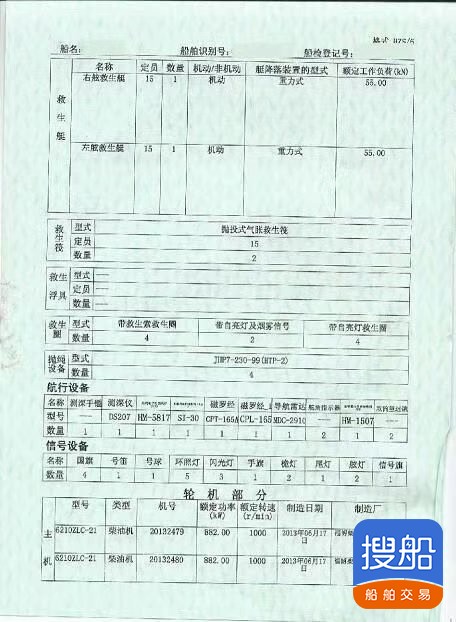 格式 07S/5
船名： 船舶识别号： 船检登记号：
救生艇
名称 定员 数量 机动/非机动 艇降落装置的型式 额定工作负荷(kN)
右舷救生艇 15 1 机动 重力式 55.00
左舷救生艇 15 1 机动 重力式 55.00
救生筏
型式 抛投式气胀救生筏
定员 15
数量 2
救生浮具
型式 ——
定员 ——
数量 ——
救生圈
型式 带救生索救生圈 带自亮灯及烟雾信号 带自亮灯救生圈
数量 4 2 4
抛绳设备
型式 JHP7-230-99(HTP-2)
数量 4
航行设备
名称 测深手锤 测深仪 磁罗经 磁罗经 导航雷达 舵角指示器
型号 —— DS207 HM-5817 SI-30 CPT-165A CPL-165 MDC-2910 —— HM-1507 ——
数量 1 1 1 1 1 1 1 2 1 2
信号设备
名称 国旗 号笛 号球 环照灯 闪光灯 手旗 桅灯 尾灯 舷灯 信号旗
数量 4 1 1 5 3 1 2 1 2 1
轮机部分
主机
型号 类型 机号 额定功率(kW) 额定转速(r/min) 制造日期 制造厂
6210ZLC-21 柴油机 20132479 882.00 1000 2013年06月17日
6210ZLC-21 柴油机 20132480 882.00 1000 2013年06月17日
搜船
船舶交易